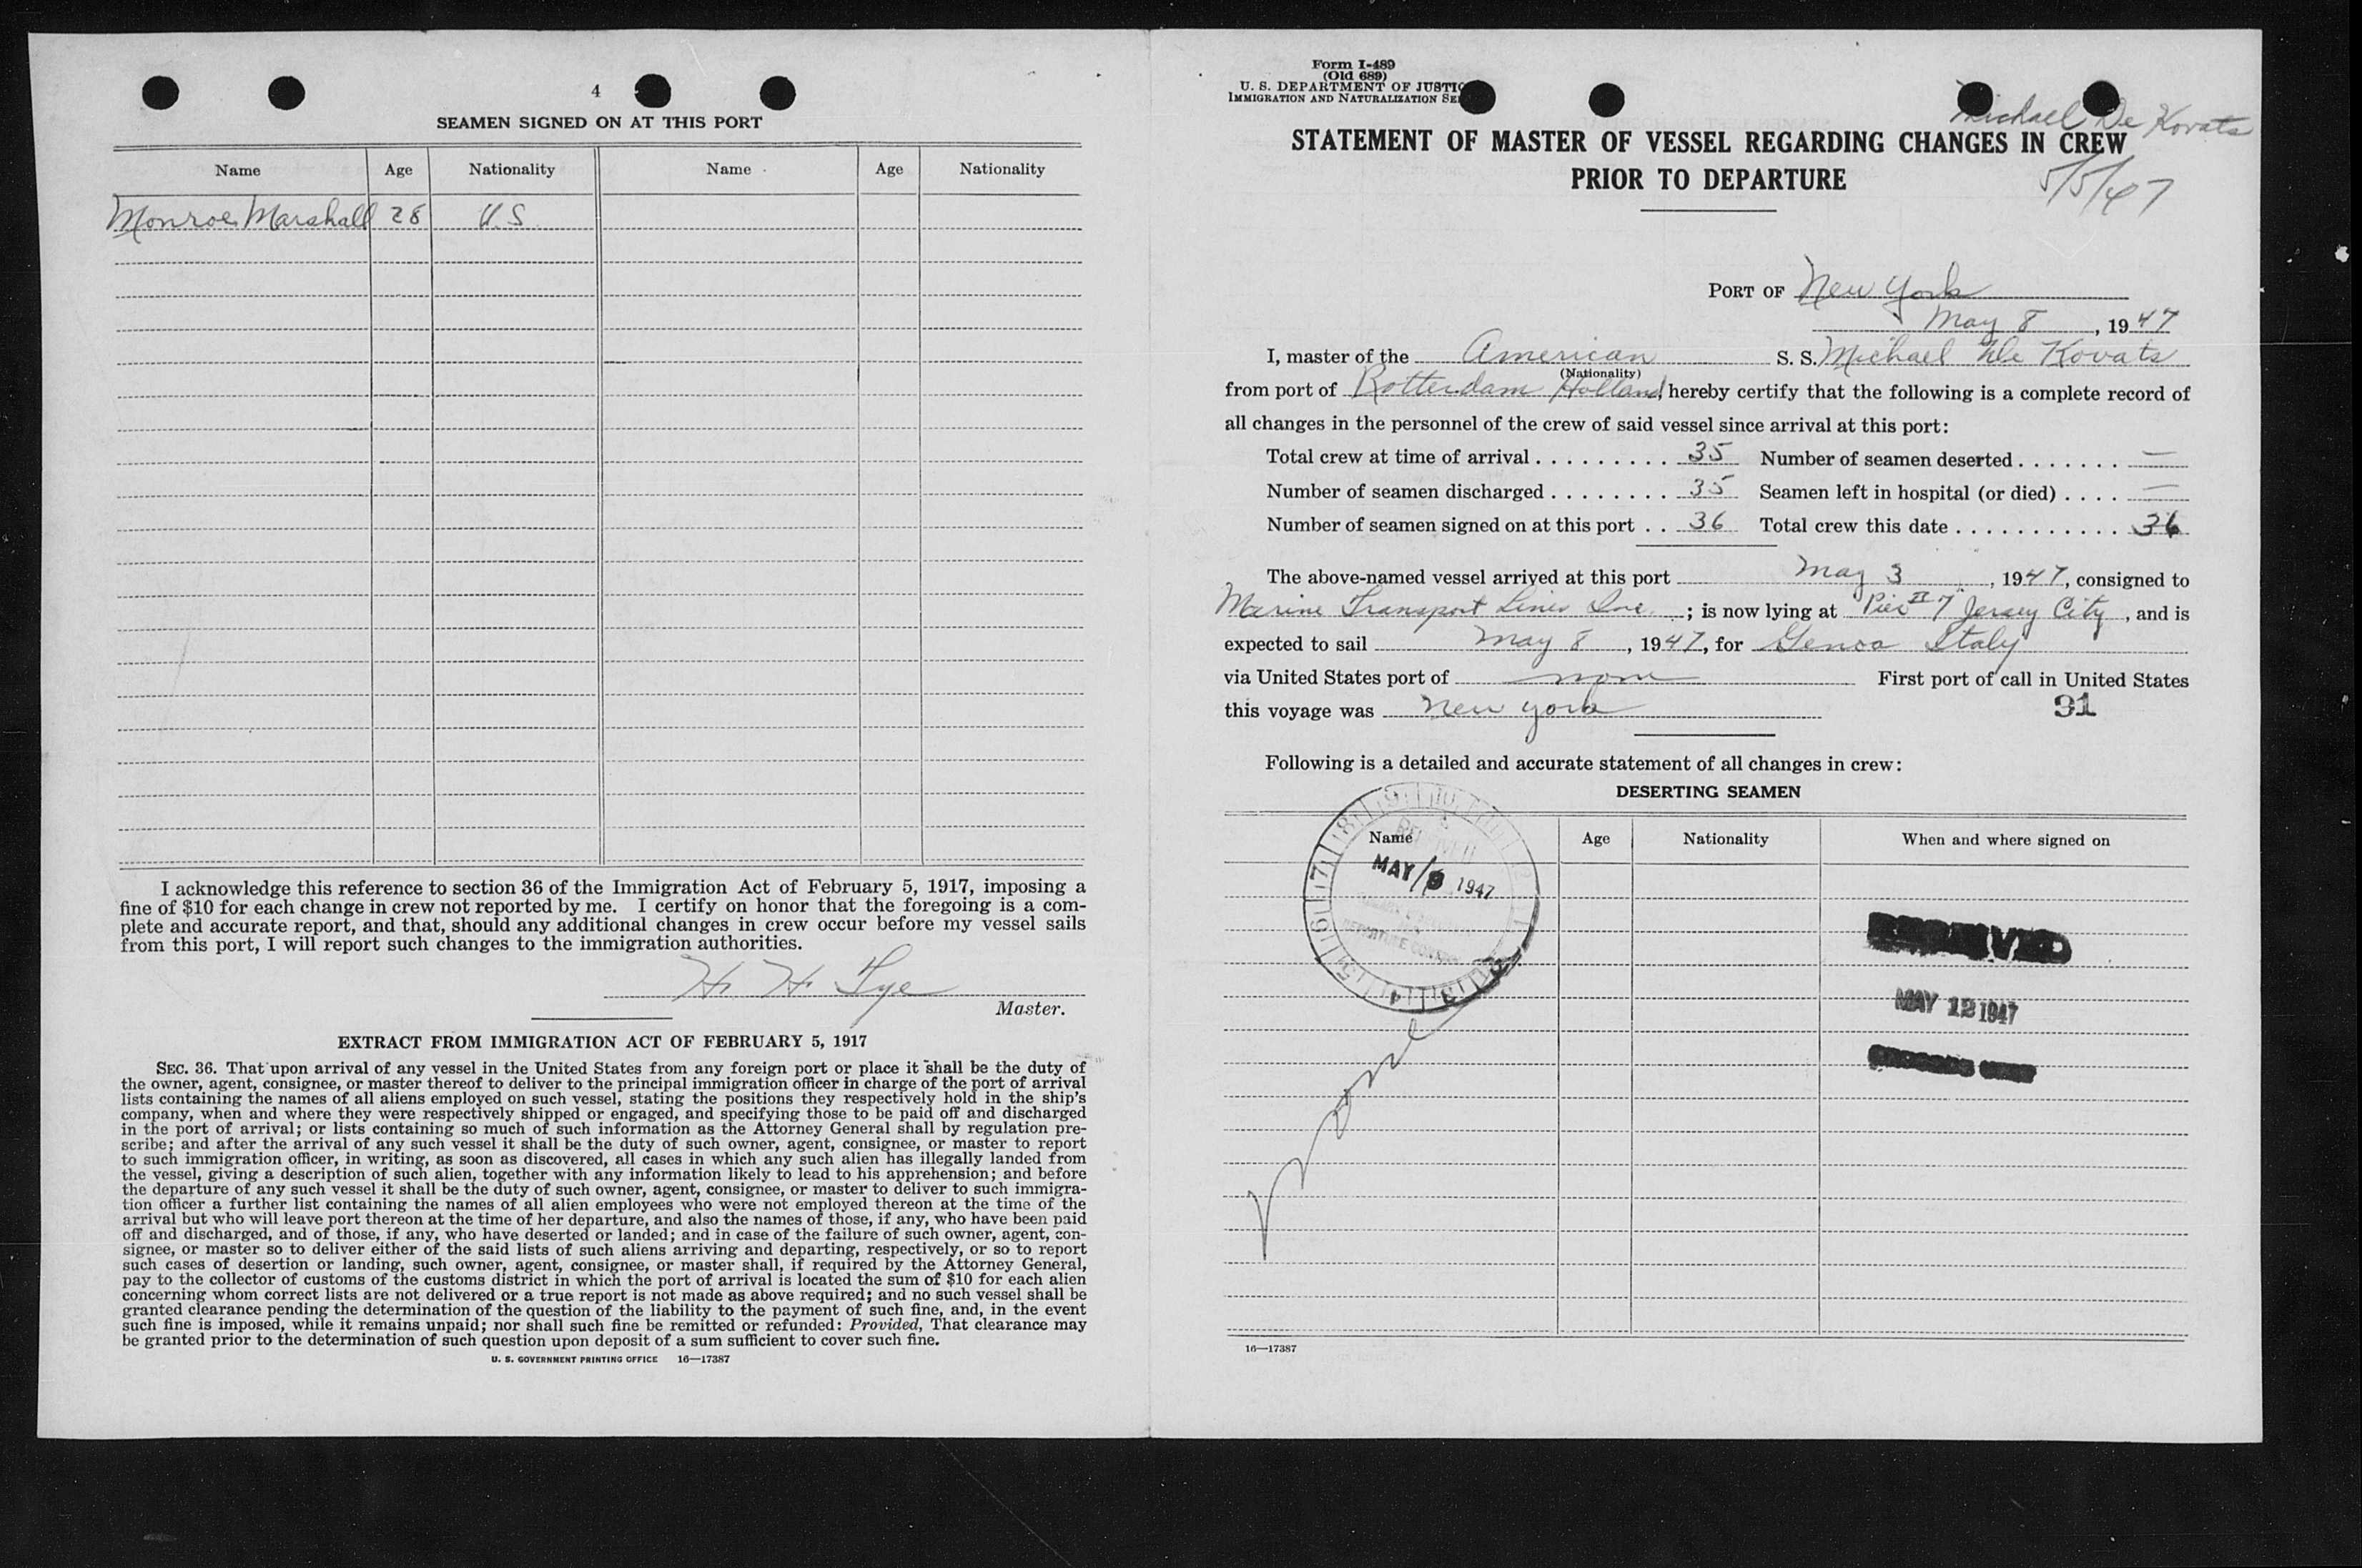 4
SEAMEN SIGNED ON AT THIS PORT
Name Age Nationality Name Age Nationality
Monroe Marshall 28 U.S.
I acknowledge this reference to section 36 of the Immigration Act of February 5, 1917, imposing a
fine of $10 for each change in crew not reported by me. I certify on honor that the foregoing is a com-
plete and accurate report, and that, should any additional changes in crew occur before my vessel sails
from this port, I will report such changes to the immigration authorities.
H. H. Tye
Master.
EXTRACT FROM IMMIGRATION ACT OF FEBRUARY 5, 1917
SEC. 36. That upon arrival of any vessel in the United States from any foreign port or place it shall be the duty of
the owner, agent, consignee, or master thereof to deliver to the principal immigration officer in charge of the port of arrival
lists containing the names of all aliens employed on such vessel, stating the positions they respectively hold in the ship's
company, when and where they were respectively shipped or engaged, and specifying those to be paid off and discharged
in the port of arrival; or lists containing so much of such information as the Attorney General shall by regulation pre-
scribe; and after the arrival of any such vessel it shall be the duty of such owner, agent, consignee, or master to report
to such immigration officer, in writing, as soon as discovered, all cases in which any such alien has illegally landed from
the vessel, giving a description of such alien, together with any information likely to lead to his apprehension; and before
the departure of any such vessel it shall be the duty of such owner, agent, consignee, or master to deliver to such immigra-
tion officer a further list containing the names of all alien employees who were not employed thereon at the time of the
arrival but who will leave port thereon at the time of her departure, and also the names of those, if any, who have been paid
off and discharged, and of those, if any, who have deserted or landed; and in case of the failure of such owner, agent, con-
signee, or master so to deliver either of the said lists of such aliens arriving and departing, respectively, or so to report
such cases of desertion or landing, such owner, agent, consignee, or master shall, if required by the Attorney General,
pay to the collector of customs of the customs district in which the port of arrival is located the sum of $10 for each alien
concerning whom correct lists are not delivered or a true report is not made as above required; and no such vessel shall be
granted clearance pending the determination of the question of the liability to the payment of such fine, and, in the event
such fine is imposed, while it remains unpaid; nor shall such fine be remitted or refunded: Provided, That clearance may
be granted prior to the determination of such question upon deposit of a sum sufficient to cover such fine.
U. S. GOVERNMENT PRINTING OFFICE 16—17387
Form I-489
(Old 689)
U. S. DEPARTMENT OF JUSTIC
IMMIGRATION AND NATURALIZATION SE
Michael De Kovats
STATEMENT OF MASTER OF VESSEL REGARDING CHANGES IN CREW
PRIOR TO DEPARTURE
5/5/47
PORT OF New York
May 8, 1947
I, master of the American S. S. Michael De Kovats
(Nationality)
from port of Rotterdam Holland, hereby certify that the following is a complete record of
all changes in the personnel of the crew of said vessel since arrival at this port:
Total crew at time of arrival 35 Number of seamen deserted —
Number of seamen discharged 35 Seamen left in hospital (or died) —
Number of seamen signed on at this port 36 Total crew this date 36
The above-named vessel arrived at this port May 3, 1947, consigned to
Marine Transport Lines Inc.; is now lying at Pier 7 Jersey City, and is
expected to sail May 8, 1947, for Genoa Italy
via United States port of none First port of call in United States
this voyage was New York
91
Following is a detailed and accurate statement of all changes in crew:
DESERTING SEAMEN
Name Age Nationality When and where signed on
RECEIVED
MAY 9 1947
DEPARTURE
RECEIVED
MAY 12 1947
None
16—17387